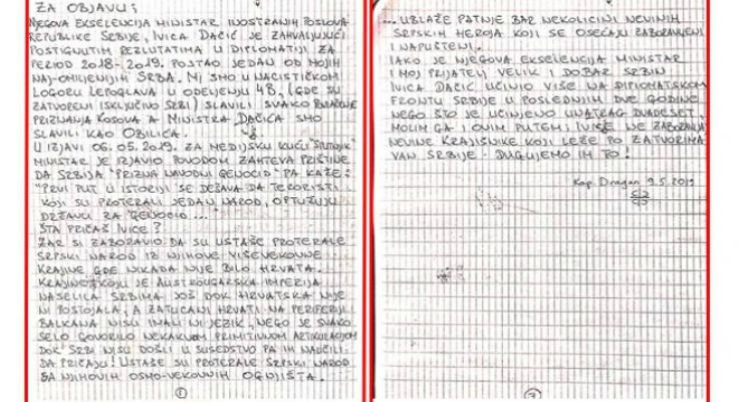 ZA OBJAVU;
NJEGOVA EKSELENCIJA MINISTAR INOSTRANIH POSLOVA
REPUBLIKE SRBIJE, IVICA DAČIĆ JE ZAHVALJUJUĆI
POSTIGNUTIM REZLUTATIMA U DIPLOMATIJI ZA
PERIOD 2018-2019. POSTAO JEDAN OD MOJIH
NAJ-OMILJENIJIH SRBA. MI SMO U NACISTIČKOM
LOGORU LEPOGLAVA U ODELJENJU 4B, (GDE SU
ZATVORENI ISKLJUČIVO SRBI) SLAVILI SVAKO POVLAČENJE
PRIZNANJA KOSOVA A MINISTRA DAČIĆA SMO
SLAVILI KAO OBILIĆA.
U IZJAVI 06.05.2019. ZA MEDIJSKU KUĆU "SPUTNJIK"
MINISTAR JE IZJAVIO POVODOM ZAHTEVA PRIŠTINE
DA SRBIJA "PRIZNA NAVODNI GENOCID" PA KAŽE:
"PRVI PUT U ISTORIJI SE DEŠAVA DA TERORISTI
KOJI SU PROTERALI JEDAN NAROD, OPTUŽUJU
DRŽAVU ZA GENOCID..."
ŠTA PRIČAŠ IVICE?
ZAR SI ZABORAVIO DA SU USTAŠE PROTERALE
SRPSKI NAROD IZ NJIHOVE VIŠEVEKOVNE
KRAJINE GDE NIKADA NIJE BILO HRVATA.
KRAJINE KOJU JE AUSTROUGARSKA IMPERIJA
NASELILA SRBIMA JOŠ DOK HRVATSKA NIJE
NI POSTOJALA, A ZATUCANI HRVATI NA PERIFERIJI
BALKANA NISU IMALI NI JEZIK, NEGO JE SVAKO
SELO GOVORILO NEKAKVOM PRIMITIVNOM ARTIKULACIJOM
DOK SRBI NISU DOŠLI U SUSEDSTVO PA IH NAUČILI
DA PRIČAJU! USTAŠE SU PROTERALE SRPSKI NAROD
SA NJIHOVIH OSMO-VEKOVNIH OGNJIŠTA.
1
... UBLAŽE PATNJE BAR NEKOLICINI NEVINIH
SRPSKIH HEROJA KOJI SE OSEĆAJU ZABORAVLJENI
I NAPUŠTENI.
IAKO JE NJEGOVA EKSELENCIJA MINISTAR
I MOJ PRIJATELJ VELIK I DOBAR SRBIN
IVICA DAČIĆ UČINIO VIŠE NA DIPLOMATSKOM
FRONTU SRBIJE U POSLEDNJIH DVE GODINE
NEGO ŠTO JE UČINJENO UNATRAG DVADESET,
MOLIM GA I OVIM PUTEM; IVICE NE ZABORAVI
NEVINE KRAJIŠNIKE KOJI LEŽE PO ZATVORIMA
VAN SRBIJE - DUGUJEMO IM TO!
Kap. Dragan 9.5.2019